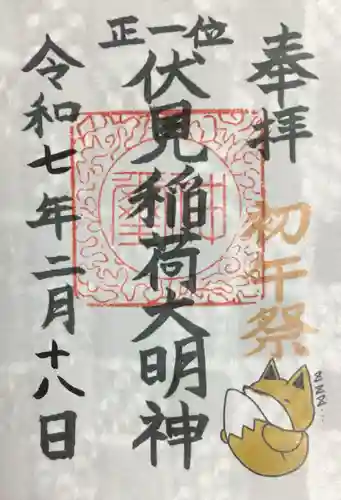 奉拝
初午祭
正一位
伏見稲荷大明神
令和七年二月十八日
zzz...